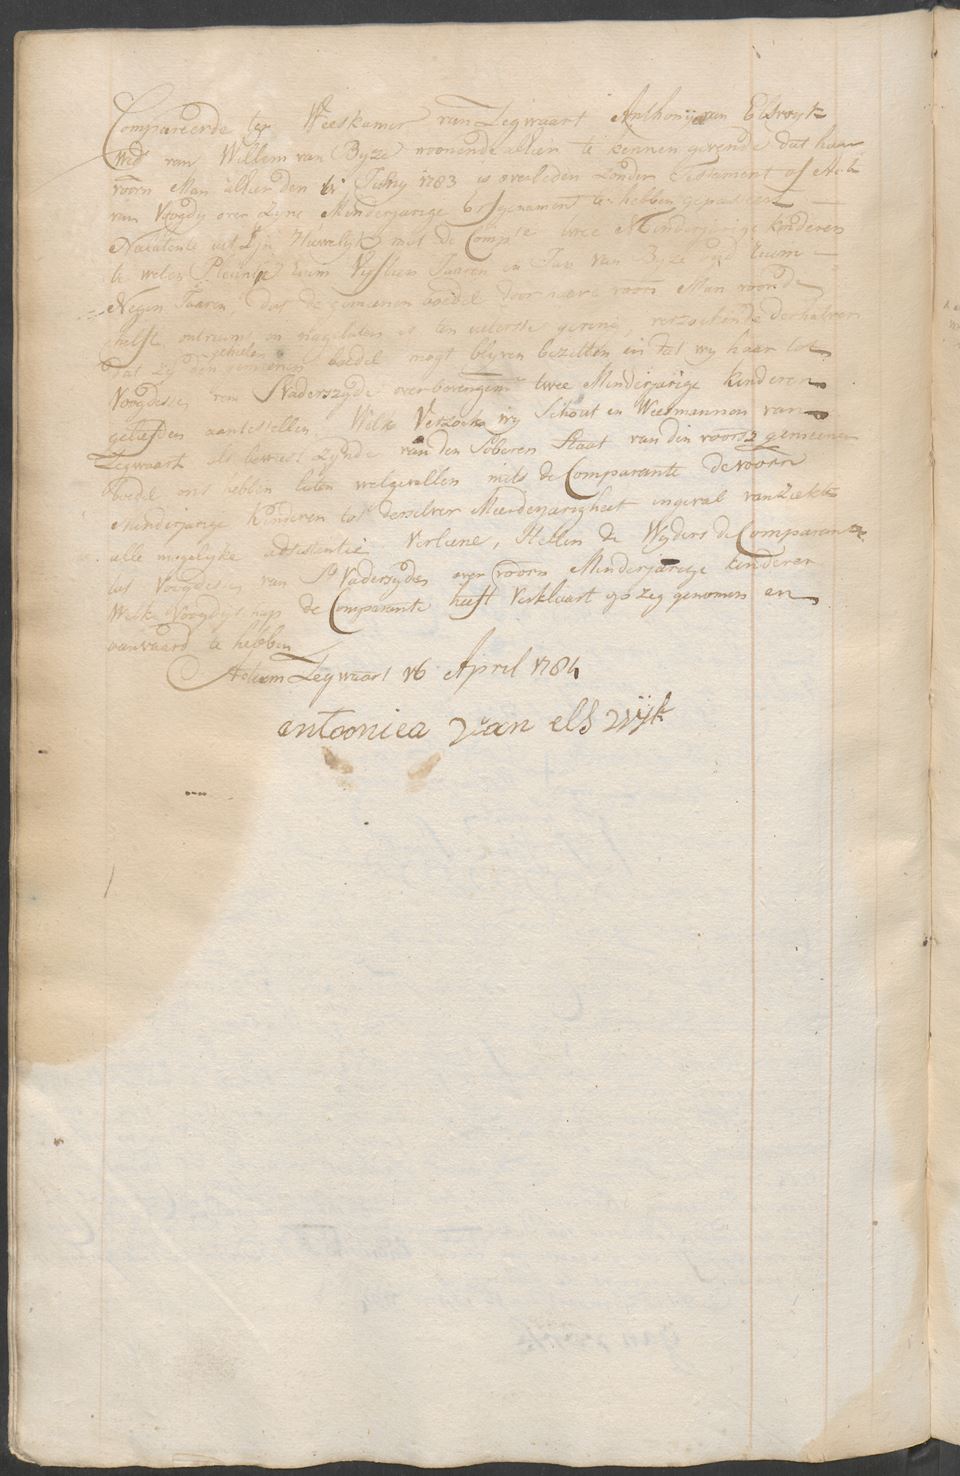 Compareerde ter Weeskamer van Zegwaart Anthonija van Elswyk
Wed van Willem van Byze woonende alhier te kennen gevende dat haar
voorn Man alhier den July 1783 is overleden zonder Testament of Acte
van Voogdy over zyne Minderjarige Erfgenamen te hebben gepasseert
Nalatende uit zijn Huwelijk met de Compte twee Minderjarige kinderen
te weten Pleuntje ruim Vyftien Jaaren en Jan van Byze oud ruim
Negen Jaaren, dat de gemeenen boedel door voorn Man voor de
helft ontruimt en nagelaten is ten uiterste gering, verzoekende derhalven
dat zy den geheelen gemeenen boedel mogt blyven bezitten en dat wy haar tot
Voogdesse van 's Vaderszyde over bovengem twee Minderjarige kinderen
geliefden aantestellen, Welk Verzoek wy Schout en Weesmannen van
Zegwaart als bewust zynde van den Soberen Staat van den voorsz gemeenen
boedel ons hebben laten welgevallen mits de Comparante de voorn
Minderjarige Kinderen tot derselver Meerderjarigheit ingeval van Ziekte
alle mogelyke adsistentie Verleene, Stellen de Wyders de Comparante
tot Voogdesse van 's Vaderszyde over voorn Minderjarige kinderen
Welk Voogdyschap de Comparante heeft Verklaart op zeg genomen en
aanvaard te hebben
Actum Zegwaart 16 April 1784
antooniea van els wijk